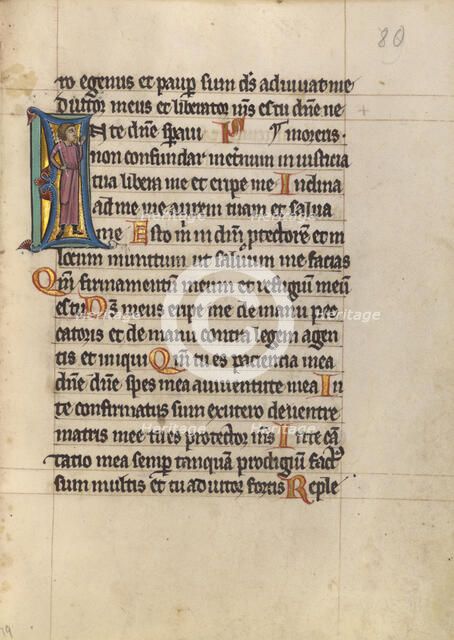 80
ro egenus et paup sum ds adiuuat me
Diutor meus et liberator ms es tu dne ne
In te dne speraui ps morens.
non confundar in eternum in iusticia
tua libera me et eripe me Inclina
ad me aurem tuam et salua
me Esto m in dm ptectorem et in
locum munitum ut saluum me facias
Qm firmamentum meum et refugium meu
es tu Ds meus eripe me de manu pec
catoris et de manu contra legem agen
tis et iniqui Qm tu es paciencia mea
dne dne spes mea a iuuentute mea In
te confirmatus sum ex utero de uentre
matris mee tu es protector ms In te can
tatio mea semp tanquam prodigium facts
sum multis et tu adiutor fortis Reple
heritage
Heritage
Heritage
Heritage
Heritage